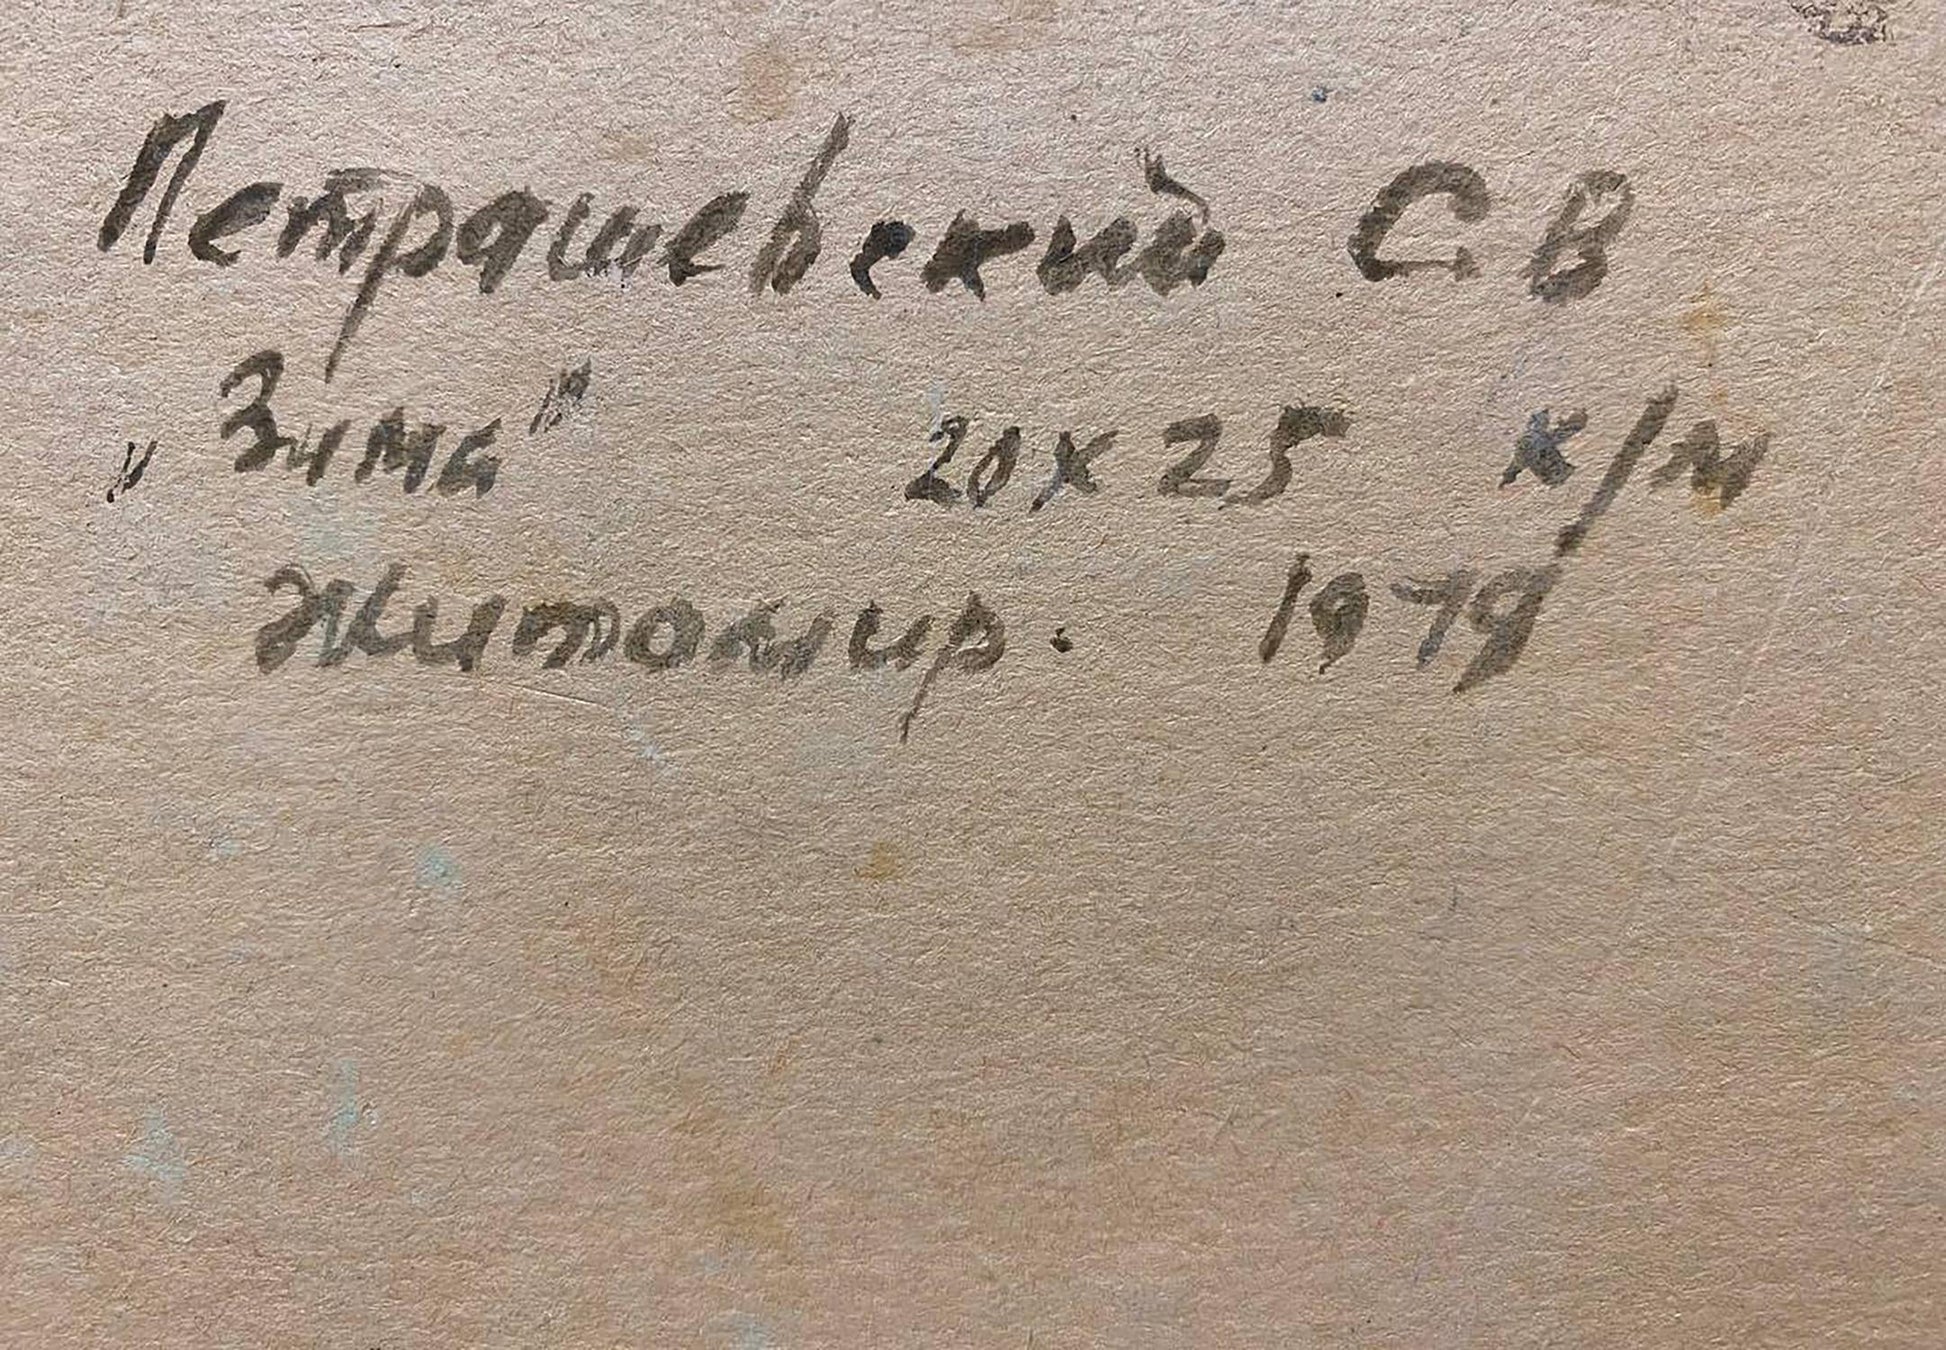 Петрашевский С.В
„Зима" 20х25 к/м
Житомир. 1979